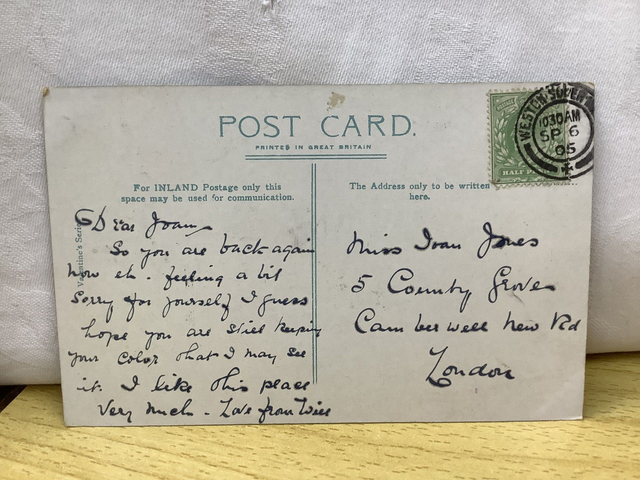 POST CARD.
PRINTED IN GREAT BRITAIN
For INLAND Postage only this
space may be used for communication.
The Address only to be written
here.
HALF
WESTON
1030AM
SP 6
05
Valentine's Series
Dear Joan
So you are back again
now eh. feeling a bit
Sorry for yourself I guess
hope you are still keeping
your color that I may see
it. I like this place
Very much - Love from Will
Miss Joan Jones
5 County Grove
Camberwell New Rd
London